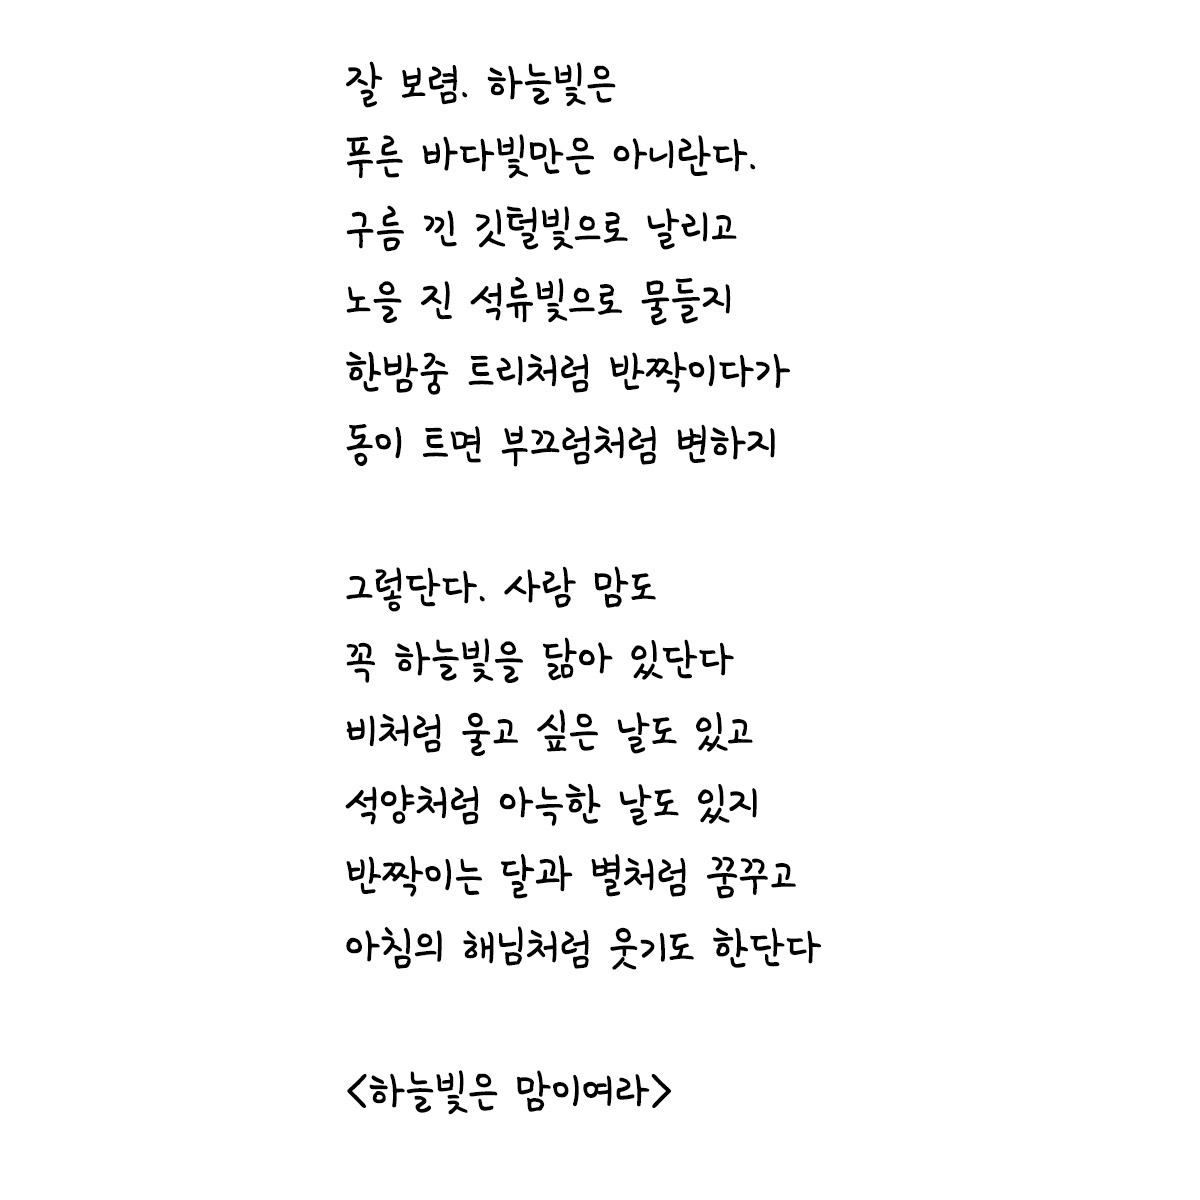 잘 보렴. 하늘빛은
푸른 바다빛만은 아니란다.
구름 낀 깃털빛으로 날리고
노을 진 석류빛으로 물들지
한밤중 트리처럼 반짝이다가
동이 트면 부끄럼처럼 변하지
그렇단다. 사람 맘도
꼭 하늘빛을 닮아 있단다
비처럼 울고 싶은 날도 있고
석양처럼 아늑한 날도 있지
반짝이는 달과 별처럼 꿈꾸고
아침의 해님처럼 웃기도 한단다
<하늘빛은 맘이여라>